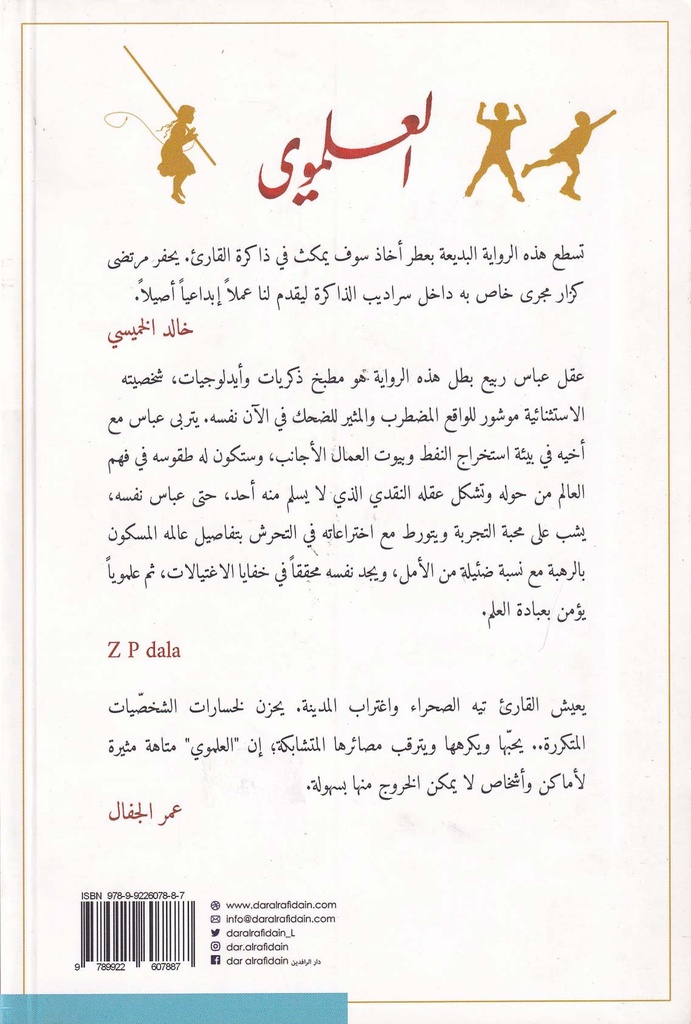 العلموي
تسطع هذه الرواية البديعة بعطر أخاذ سوف يمكث في ذاكرة القارئ. يحفر مرتضى
كزار مجرى خاص به داخل سراديب الذاكرة ليقدم لنا عملاً إبداعياً أصيلاً.
خالد الخميسي
عقل عباس ربيع بطل هذه الرواية هو مطبخ ذكريات وأيدلوجيات، شخصيته
الاستثنائية موشور للواقع المضطرب والمثير للضحك في الآن نفسه. يتربى عباس مع
أخيه في بيئة استخراج النفط وبيوت العمال الأجانب، وستكون له طقوسه في فهم
العالم من حوله وتشكل عقله النقدي الذي لا يسلم منه أحد، حتى عباس نفسه،
يشب على محبة التجربة ويتورط مع اختراعاته في التحرش بتفاصيل عالمه المسكون
بالرهبة مع نسبة ضئيلة من الأمل، ويجد نفسه محققاً في خفايا الاغتيالات، ثم علموياً
يؤمن بعبادة العلم.
Z P dala
يعيش القارئ تيه الصحراء واغتراب المدينة. يحزن لخسارات الشخصّيات
المتكررة.. يحبّها ويكرهها ويترقب مصائرها المتشابكة؛ إن "العلموي" متاهة مثيرة
لأماكن وأشخاص لا يمكن الخروج منها بسهولة.
عمر الجفال
ISBN 978-9-9226078-8-7
9 789922 607887
www.daralrafidain.com
info@daralrafidain.com
daralrafidain_L
dar.alrafidain
dar alrafidain دار الرافدين